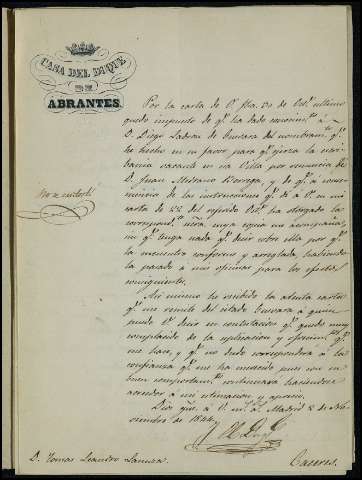 CASA DEL DUQUE
DE
ABRANTES.
Por la carta de V. fha. 30 de Oct.e ultimo
quedo impuesto de q.e ha dado conocim.to á
D. Diego Ladron de Guevara del nombram.to q.e
he hecho en su favor para q.e ejerza la escri-
bania vacante en esa Villa por renuncia de
D. Juan Medrano Borrega, y de q.e á conse-
cuencia de las instrucciones q.e dí á V. en mi
carta de 22 del referido Oct.e ha otorgado la
correspond.te cuya copia me acompaña,
ni q.e tenga nada q.e decir sobre ella por q.e
la encuentro conforme y arreglada habiendo
la pasado á mis oficinas para los efectos
consiguientes.
Asi mismo he recibido la atenta carta
q.e me remite del citado Guevara á quien
puede V. decir en contestacion q.e quedo muy
complacido de la esplicacion y ofrecim.tos q.e
me hace, y q.e no dudo corresponderá á la
confianza q.e me ha merecido pues con su
buen comportam.to continuará haciendose
acreedor á mi estimacion y aprecio.
Dios gue. á V. m.s a.s Madrid 8 de No-
viembre de 1844
D. Tomas Leandro
Caceres.